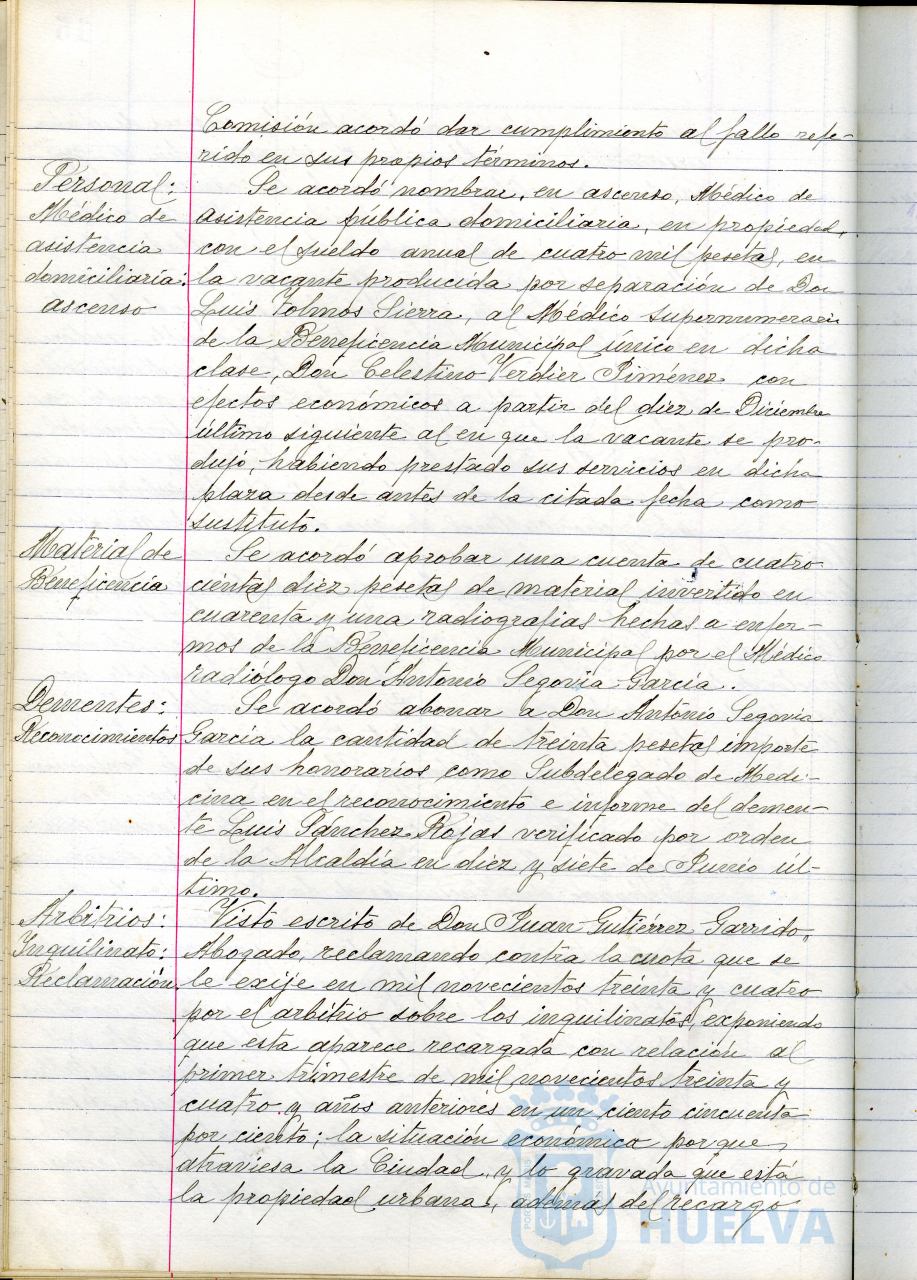 Comisión acordó dar cumplimiento al fallo refe-
rido en sus propios términos.
Personal:
Médico de
asistencia
domiciliaria:
ascenso
Se acordó nombrar, en ascenso, Médico de
asistencia pública domiciliaria, en propiedad,
con el sueldo anual de cuatro mil pesetas, en
la vacante producida por separación de Don
Luis Tolmos Sierra, al Médico supernumerario
de la Beneficencia Municipal único en dicha
clase, Don Celestino Verdier Jiménez con
efectos económicos a partir del diez de Diciembre
último siguiente al en que la vacante se pro-
dujo, habiendo prestado sus servicios en dicha
plaza desde antes de la citada fecha como
sustituto.
Material de
Beneficencia
Se acordó aprobar una cuenta de cuatro
cientas diez pesetas de material invertido en
cuarenta y una radiografías hechas a enfer-
mos de la Beneficencia Municipal por el Médico
radiólogo Don Antonio Segovia García.
Dementes:
Reconocimientos
Se acordó abonar a Don Antonio Segovia
García la cantidad de treinta pesetas importe
de sus honorarios como Subdelegado de Medi-
cina en el reconocimiento e informe del demen-
te Luis Sánchez Rojas verificado por orden
de la Alcaldía en diez y siete de Junio úl-
timo.
Arbitrios:
Inquilinato:
Reclamación
Visto escrito de Don Juan Gutiérrez Garrido,
Abogado, reclamando contra la cuota que se
le exije en mil novecientos treinta y cuatro
por el arbitrio sobre los inquilinatos, exponiendo
que esta aparece recargada con relación al
primer trimestre de mil novecientos treinta y
cuatro y años anteriores en un ciento cincuenta
por ciento; la situación económica porque
atraviesa la Ciudad, y lo gravada que está
la propiedad urbana, además del recargo
Ayuntamiento de
HUELVA